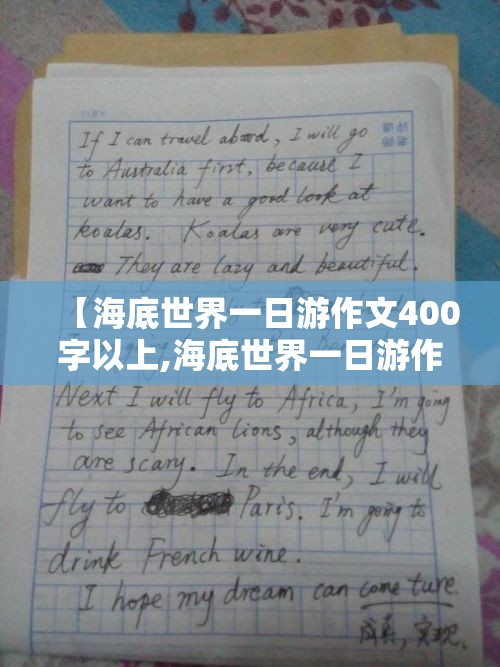 If I can travel aboard, I will go
to Australia first, because I
want to have a good look at
koalas. Koalas are very cute.
They are lazy and beautiful.
【海底世界一日游作文400
字以上,海底世界一日游作
Next I will fly to Africa, I'm going
to see African lions, although they
are scary. In the end, I will
fly to Paris. I'm going to
drink French wine.
I hope my dream can come ture.
成真,实现.